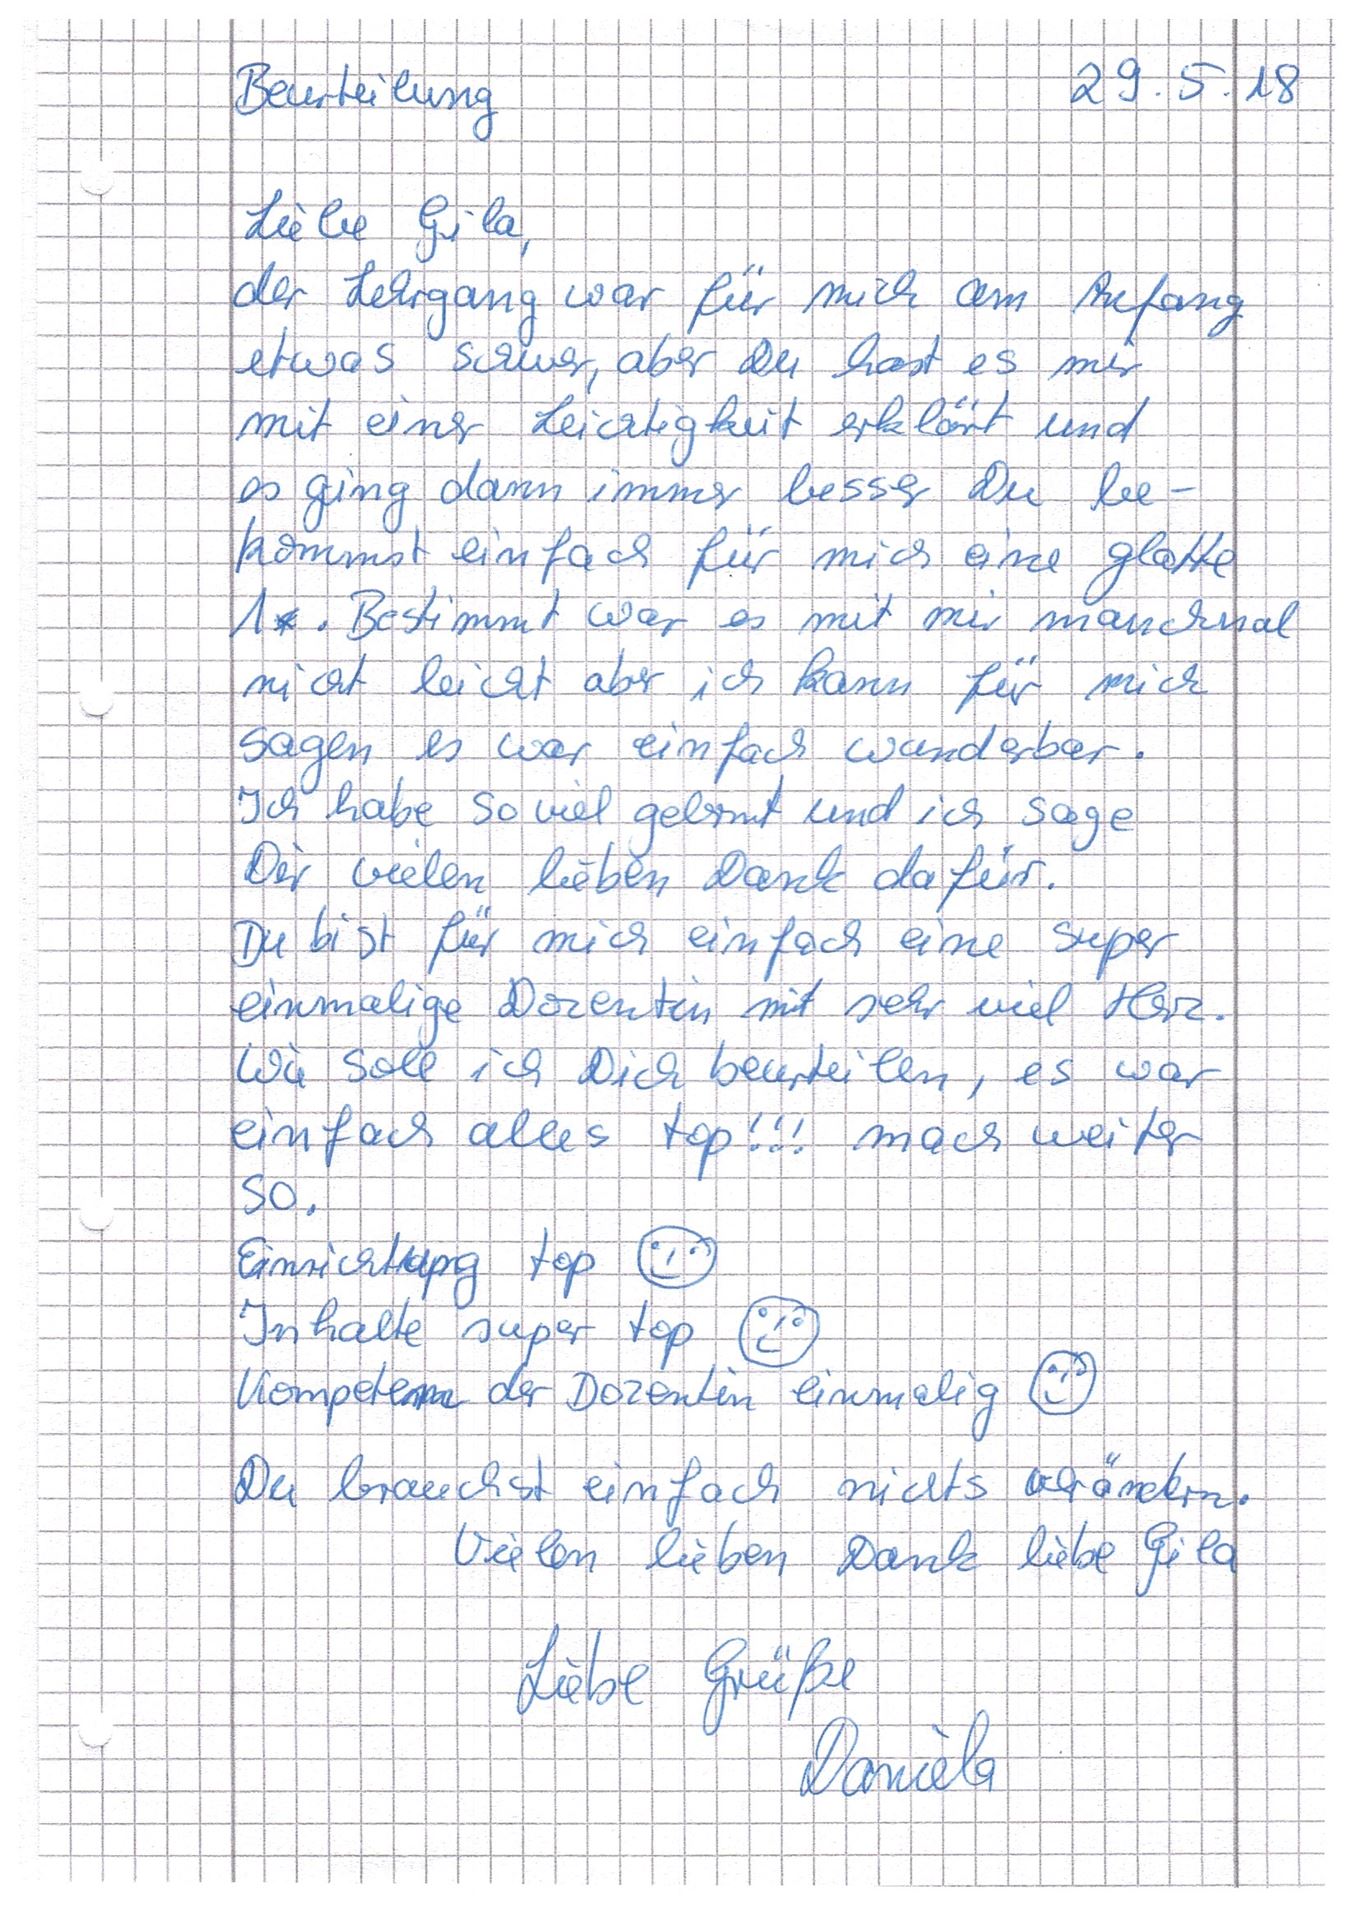 Beurteilung 29.5.18
Liebe Gila,
der Lehrgang war für mich am Anfang
etwas schwer, aber Du hast es mir
mit einer Leichtigkeit erklärt und
es ging dann immer besser Du be-
kommst einfach für mich eine glatte
1*. Bestimmt war es mit mir manchmal
nicht leicht aber ich kann für mich
sagen es war einfach wunderbar.
Ich habe so viel gelernt und ich sage
Dir vielen lieben Dank dafür.
Du bist für mich einfach eine super
einmalige Dozentin mit sehr viel Herz.
Wie soll ich Dich beurteilen, es war
einfach alles top!!! mach weiter
so.
Einrichtung top
Inhalte super top
Kompetenz der Dozentin einmalig
Du brauchst einfach nichts verändern.
Vielen lieben Dank liebe Gila
Liebe Grüße
Daniela